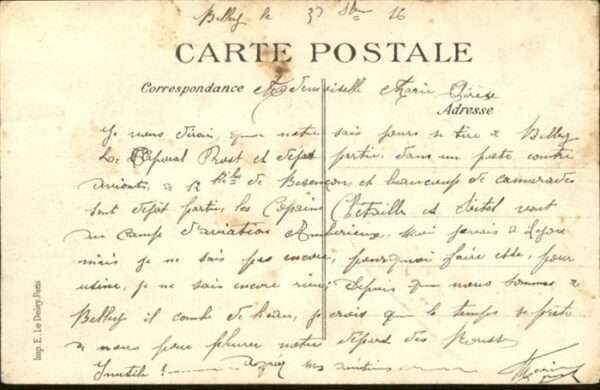 Belley le 30 16
CARTE POSTALE
Correspondance
Mademoiselle Marie
Adresse
Je vous dirai, que notre jours se tire a Belley
Le Caporal Prost est dejat partie, dans un poste contre
avions, a 12 Kil de Besançon, et beaucoup de camarades
sont dejat partis, les Copains et vont
au camp d'aviation Amberieux, moi je vais a
mais je ne sais pas encore, pourquoi faire esse, pour
usine, je ne sais encore rien. Depuis que nous sommes a
Belley il tombe de l'eau, je crois que le temps se prete
a nous pour pleurer notre depard des
Inutile ! mes
Imp. E. Le Deley, Paris